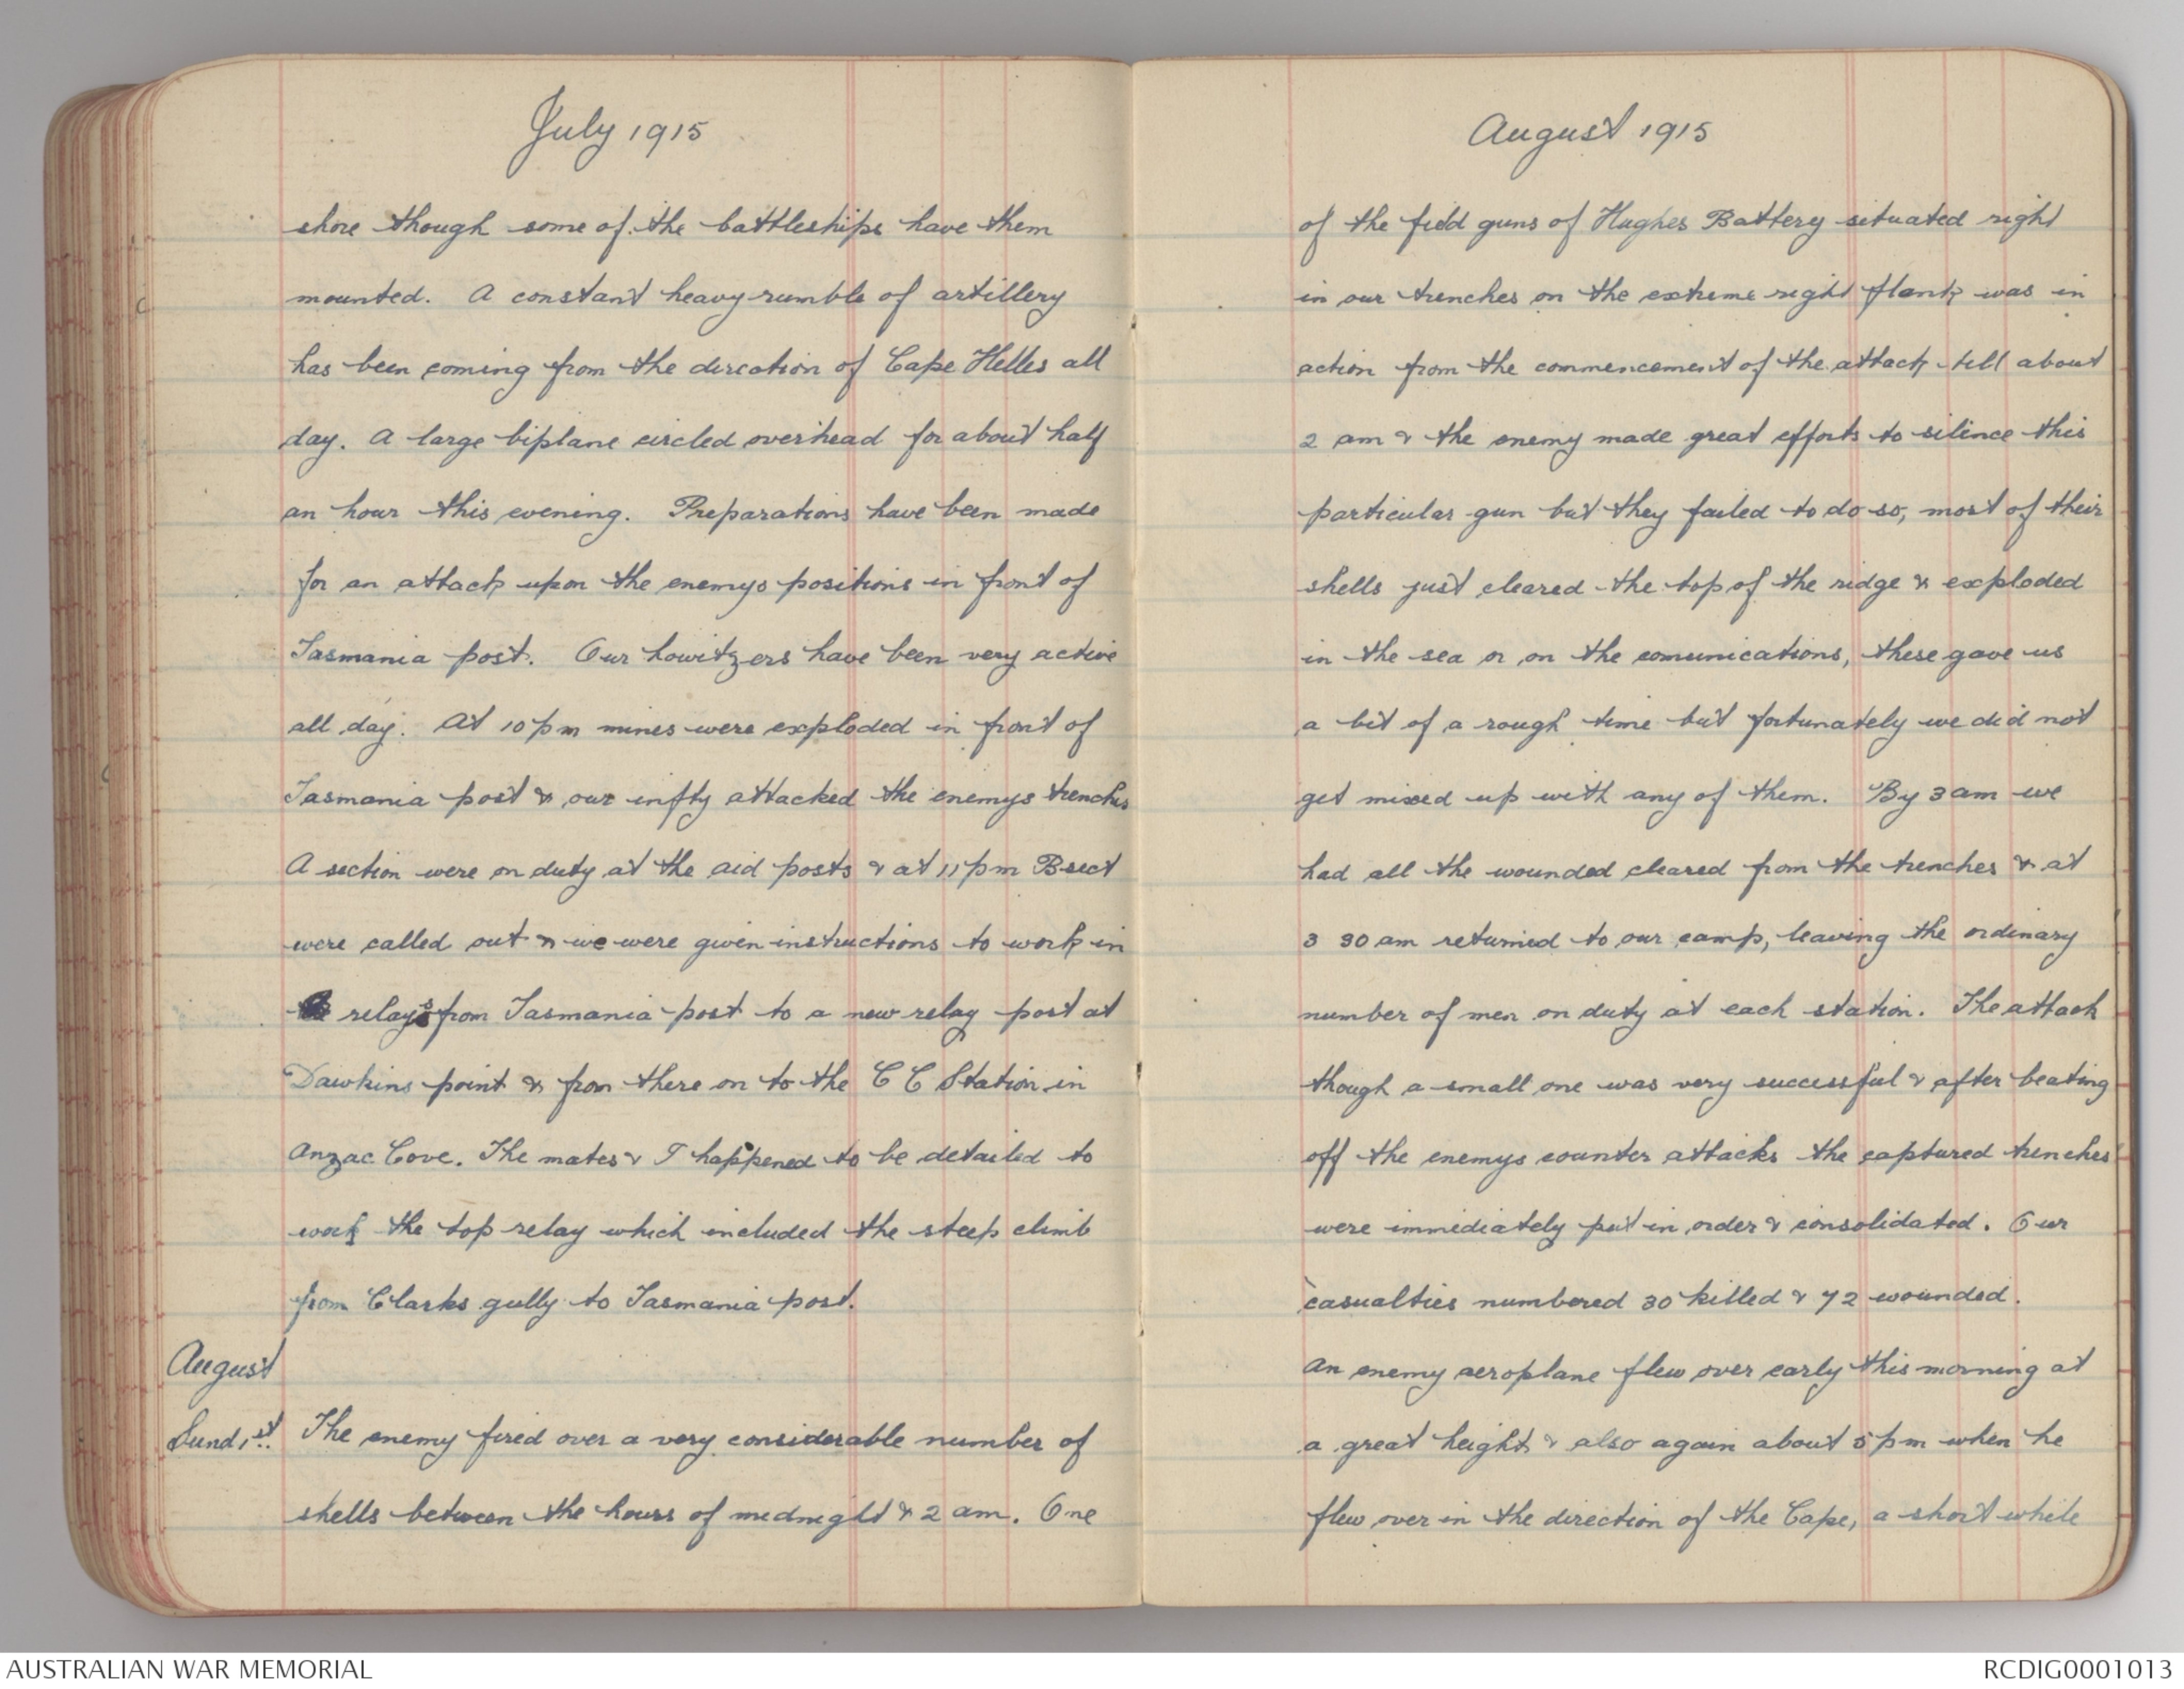 July 1915
shore though some of the battleships have them
mounted. A constant heavy rumble of artillery
has been coming from the direction of Cape Helles all
day. A large biplane circled overhead for about half
an hour this evening. Preparations have been made
for an attack upon the enemys positions in front of
Tasmania post. Our howitzers have been very active
all day. At 10 pm mines were exploded in front of
Tasmania post & our infty attacked the enemys trenches
A section were on duty at the aid posts & at 11 pm B sect
were called out & we were given instructions to work in
relays from Tasmania post to a new relay post at
Dawkins point & from there on to the C C Station in
Anzac Cove. The mates & I happened to be detailed to
work the top relay which included the steep climb
from Clarks gully to Tasmania post.
August
Sund 1st. The enemy fired over a very considerable number of
shells between the hours of midnight & 2 am. One
August 1915
of the field guns of Hughes Battery situated right
in our trenches on the extreme right flank was in
action from the commencement of the attack till about
2 am & the enemy made great efforts to silence this
particular gun but they failed to do so, most of their
shells just cleared the top of the ridge & exploded
in the sea or on the comunications, these gave us
a bit of a rough time but fortunately we did not
get mixed up with any of them. By 3 am we
had all the wounded cleared from the trenches & at
3 30 am returned to our camp, leaving the ordinary
number of men on duty at each station. The attack
though a small one was very successful & after beating
off the enemys counter attacks the captured trenches
were immediately put in order & consolidated. Our
casualties numbered 30 killed & 72 wounded.
An enemy aeroplane flew over early this morning at
a great height & also again about 5 pm when he
flew over in the direction of the Cape, a short while
AUSTRALIAN WAR MEMORIAL
RCDIG0001013